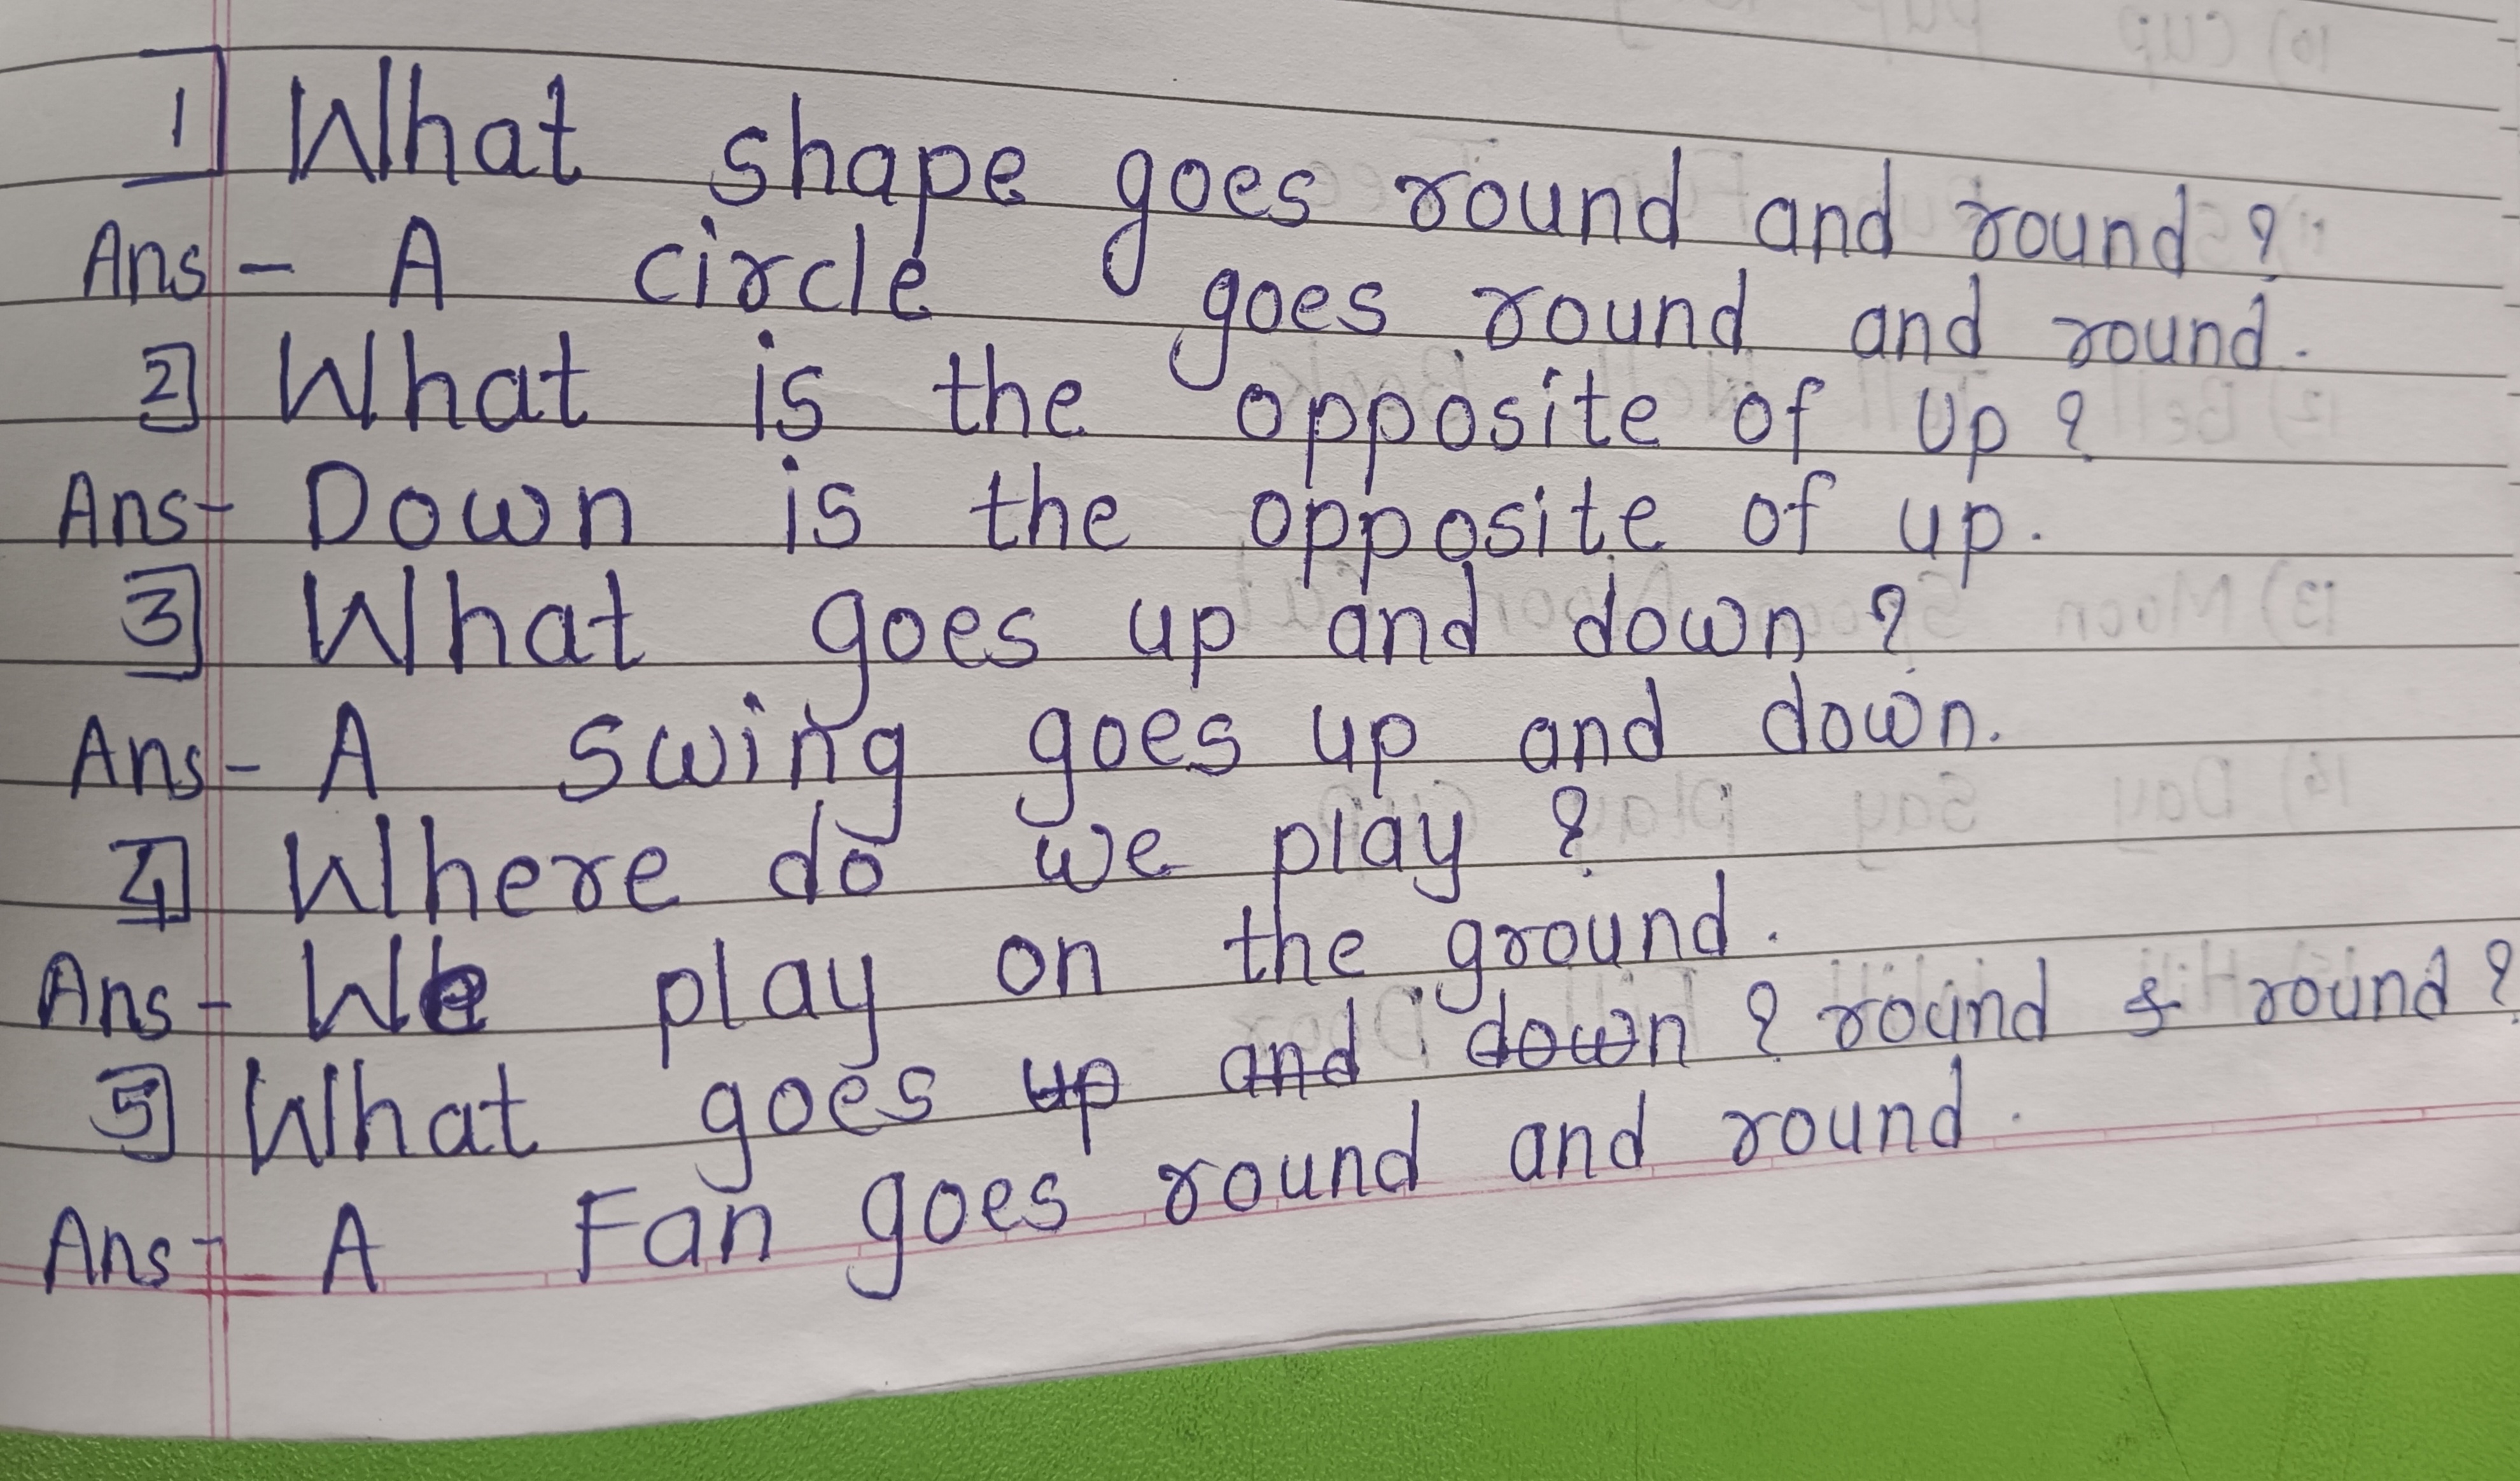 1 What shape goes round and round ?
Ans - A circle goes round and round.
2 What is the opposite of up ?
Ans - Down is the opposite of up.
3 What goes up and down ?
Ans - A swing goes up and down.
4 Where do we play ?
Ans - We play on the ground.
5 What goes up and down ? round & round ?
Ans - A Fan goes round and round.